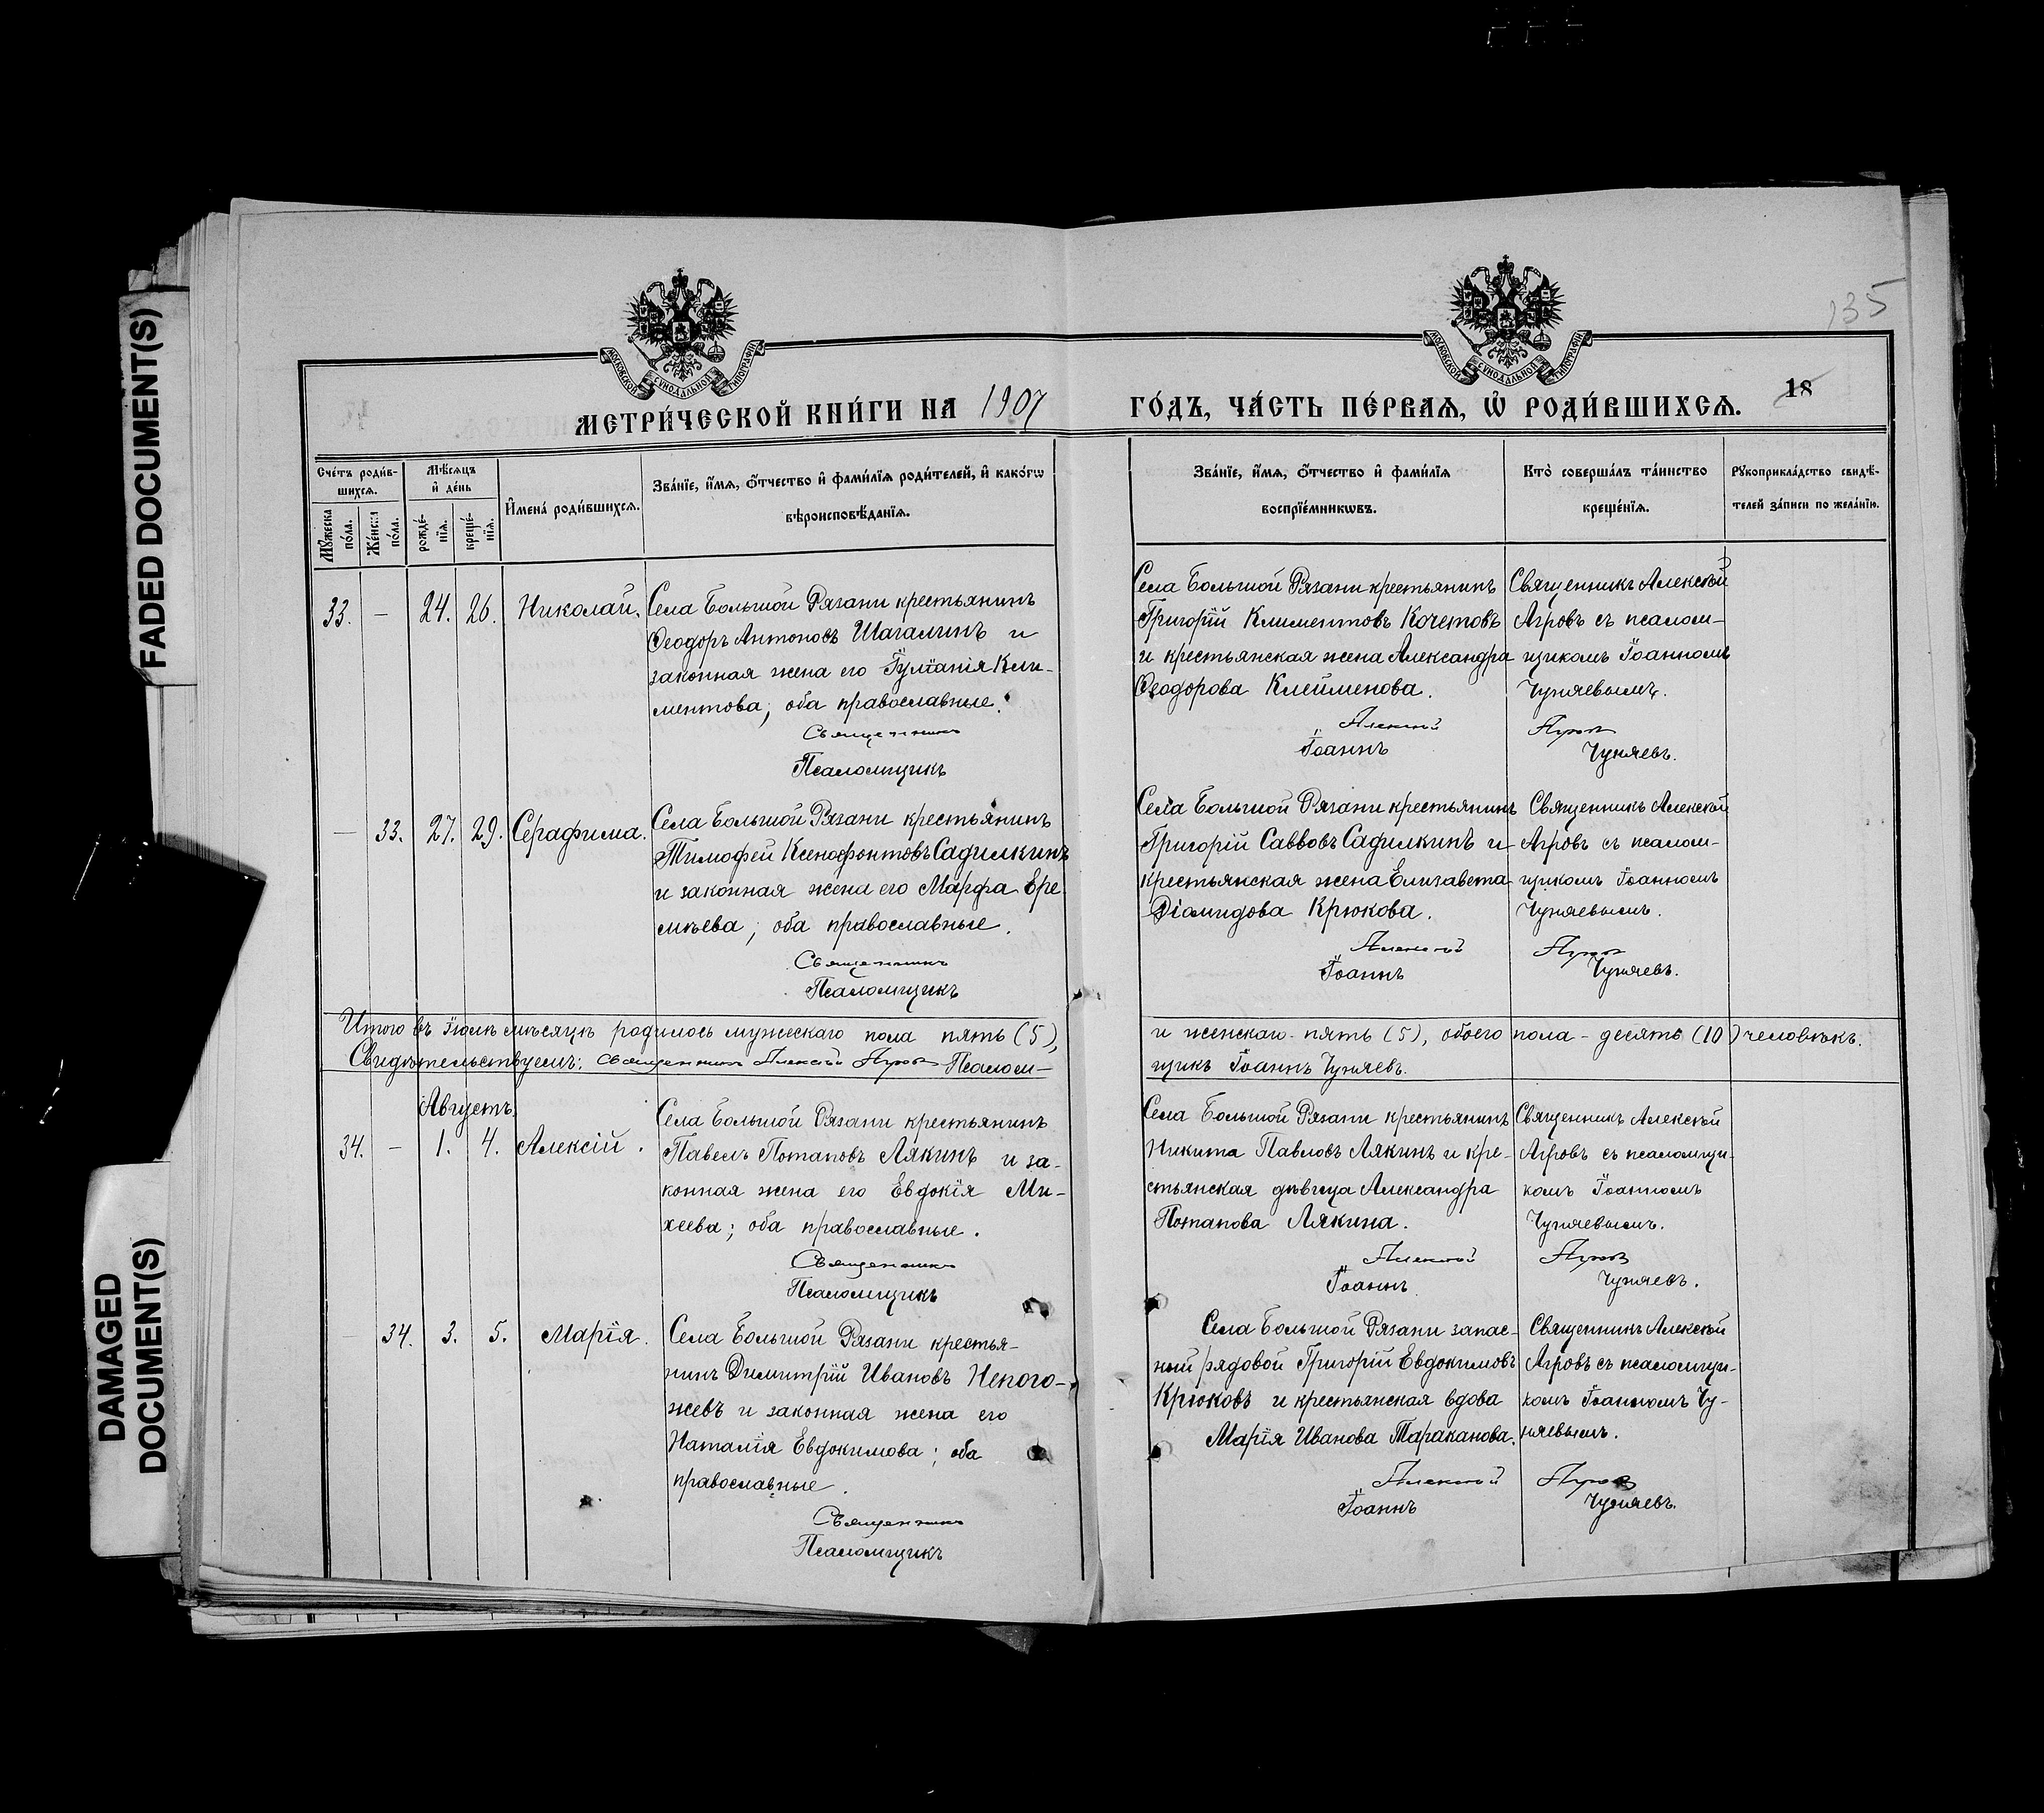 FADED DOCUMENT(S)
DAMAGED
DOCUMENT(S)
135
18
МОСКОВСКОЙ СѴНОДАЛЬНОЙ ТИПОГРАФІИ
МОСКОВСКОЙ СѴНОДАЛЬНОЙ ТИПОГРАФІИ
МЕТРИ́ЧЕСКОЙ КНИ́ГИ НА 1907 ГО́ДЪ, ЧА́СТЬ ПЕ́РВАѦ, Ѡ҆ РОДИ́ВШИХСѦ.
Сче́тъ роди́в-
шихсѧ.
Мꙋ́жеска
по́ла.
Же́нска
по́ла.
Мѣ́сѧцъ
и҆ де́нь
рожде́-
нїѧ.
креще́-
нїѧ.
И҆мена̀ роди́вшихсѧ.
Зва́нїе, и҆́мѧ, ѻ҆́тчество и҆ фами́лїѧ роди́телей, и҆ како́гѡ
вѣроисповѣ́данїѧ.
Зва́нїе, и҆́мѧ, ѻ҆́тчество и҆ фами́лїѧ
воспрїе́мникѡвъ.
Кто̀ соверша́лъ та́инство
креще́нїѧ.
Рꙋкоприкла́дство свидѣ́-
телей за́писи по жела́нїю.
33. — 24. 26. Николай.
Села Большой Рязани крестьянинъ
Ѳеодоръ Антоновъ Шагалинъ и
законная жена его Іуліанія Кли-
ментова; оба православные.
Священникъ
Псаломщикъ
Села Большой Рязани крестьянинъ
Григорій Климентовъ Кочетовъ
и крестьянская жена Александра
Ѳеодорова Клейменова.
Алексій
Іоаннъ
Священникъ Алексѣй
Агровъ съ псалом-
щикомъ Іоанномъ
Чуняевымъ.
Агровъ
Чуняевъ.
— 33. 27. 29. Серафима.
Села Большой Рязани крестьянинъ
Тимофей Ксенофонтовъ Садилкинъ
и законная жена его Марфа Ере
мѣева; оба православные.
Священникъ
Псаломщикъ
Села Большой Рязани крестьянинъ
Григорій Саввовъ Садилкинъ и
крестьянская жена Елизавета
Діамидова Крюкова.
Алексѣй
Іоаннъ
Священникъ Алексѣй
Агровъ съ псалом-
щикомъ Іоанномъ
Чуняевымъ.
Агровъ
Чуняевъ.
Итого въ Іюлѣ мѣсяцѣ родилось мужескаго пола пять (5), и женскаго пять (5), обоего пола - десять (10) человѣкъ.
Свидѣтельствуемъ: Священникъ Алексѣй Агровъ Псалом- щикъ Іоаннъ Чуняевъ.
Августъ.
34. — 1. 4. Алексій.
Села Большой Рязани крестьянинъ
Павелъ Потаповъ Лякинъ и за-
конная жена его Евдокія Ми-
хеева; оба православные.
Священникъ
Псаломщикъ
Села Большой Рязани крестьянинъ
Никита Павловъ Лякинъ и кре-
стьянская дѣвица Александра
Потапова Лякина.
Алексѣй
Іоаннъ
Священникъ Алексѣй
Агровъ съ псаломщи-
комъ Іоанномъ
Чуняевымъ.
Агровъ
Чуняевъ.
— 34. 3. 5. Марія.
Села Большой Рязани крестья-
нинъ Димитрій Ивановъ Непого-
жевъ и законная жена его
Наталія Евдокимова; оба
православные.
Священникъ
Псаломщикъ
Села Большой Рязани запас-
ный рядовой Григорій Евдокимовъ
Крюковъ и крестьянская вдова
Марія Иванова Тараканова.
Алексѣй
Іоаннъ
Священникъ Алексѣй
Агровъ съ псаломщи-
комъ Іоанномъ Чу-
няевымъ.
Агровъ
Чуняевъ.